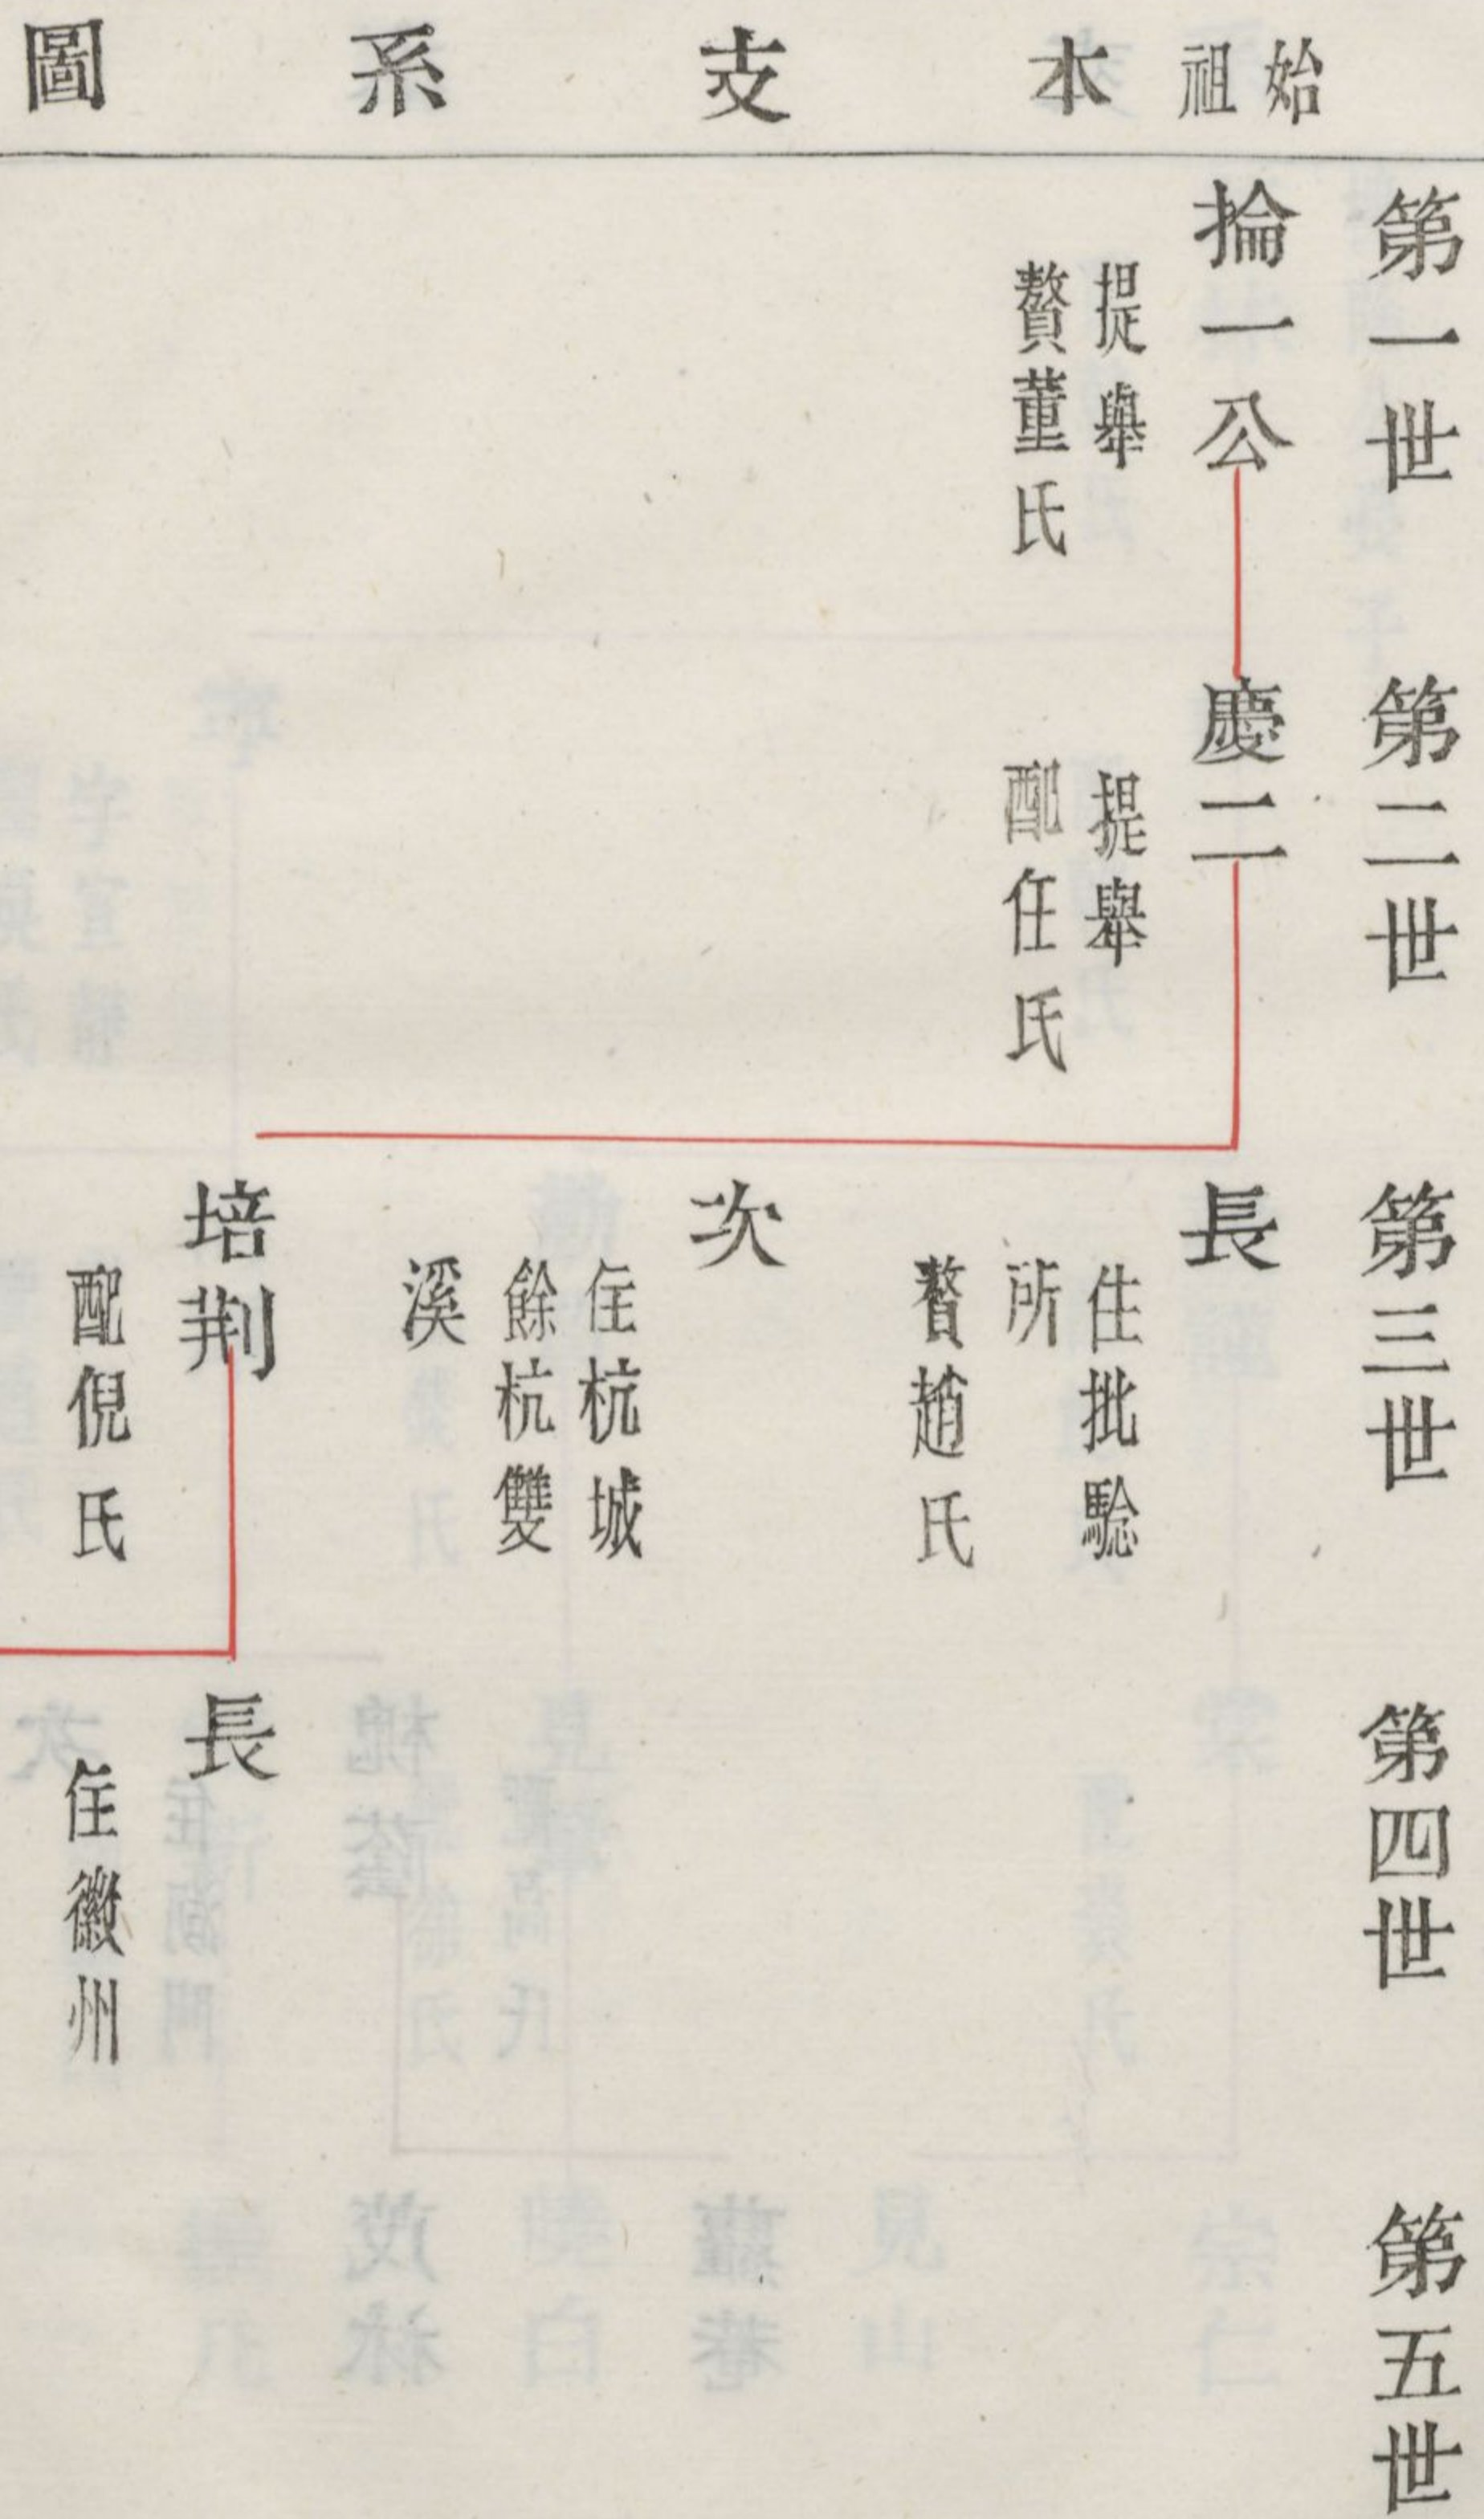 始祖
本支系圖
第一世
掄一公
提舉
贅董氏
第二世
慶二
提舉
配任氏
第三世
長
住批騐
所
贅趙氏
次
住杭城
餘杭雙
溪
培荆
配倪氏
第四世
長
住徽州
第五世